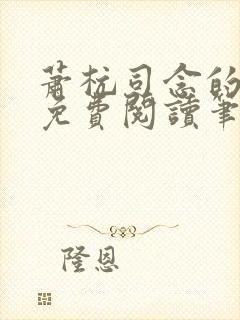 蕭杭司念的
免費閱讀筆
隆恩